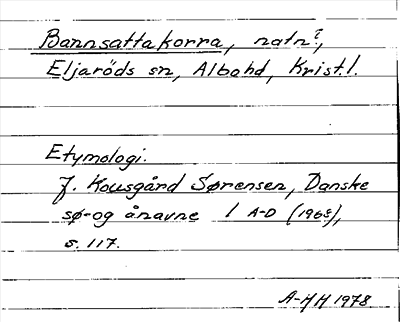 Bannsattakorra, natn?,
Eljaröds sn, Albohd, Krist.l.
Etymologi.
J. Kousgård Sørensen, Danske
sø- og ånavne 1 A-D (1968),
s. 117.
A-HH 1978.